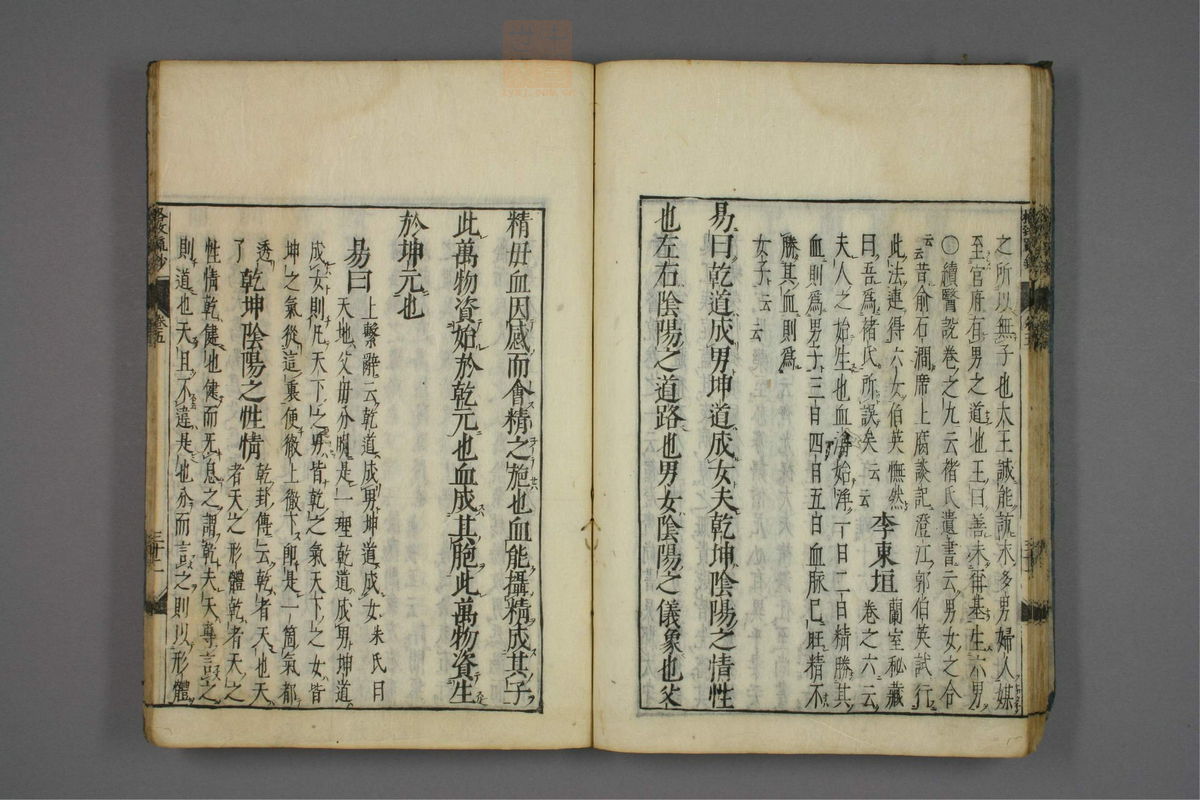 之所以無子也太王誠能訪求多男婦人媒
至官府有男之道也王曰善未再朞生六男
○續醫說卷之九云褚氏遺書云男女之合
云昔俞石澗席上腐談記澄江郭伯英試行
此法連得六女伯英憮然
曰吾爲褚氏所誤矣云云
李東垣
蘭室秘藏
卷之六云
夫人之始生也血海始淨一日二日精勝其
血則爲男子三日四日五日血脉已旺精不
勝其血則爲
女子云云
易曰乾道成男坤道成女夫乾坤陰陽之情性
也左右陰陽之道路也男女陰陽之儀象也父
精母血因感而會精之施也血能攝精成其子
此萬物資始於乾元也血成其胞此萬物資生
於坤元也
易曰
上繫辭云乾道成男坤道成女朱氏曰
天地父母分明是一理乾道成男坤道
成女則凡天下之男皆乾之氣天下之女皆
坤之氣從這裏便徹上徹下即是一箇氣都
透
了
乾坤陰陽之性情
乾卦傳云乾者天也天
者天之形體乾者天之
性情乾健也健而无息之謂乾夫天專言之
則道也天且不違是也分而言之則以形體
卷五
三十二